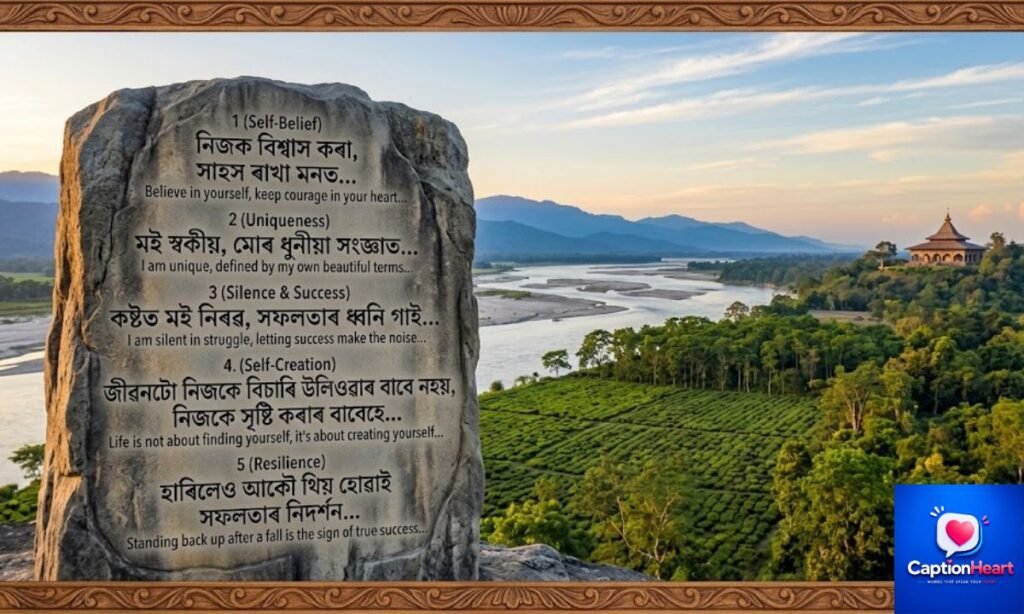 1 (Self-Belief)
নিজক বিশ্বাস কৰা,
সাহস ৰাখা মনত...
Believe in yourself, keep courage in your heart...
2 (Uniqueness)
মই স্বকীয়, মোৰ ধুনীয়া সংজ্ঞাত...
I am unique, defined by my own beautiful terms...
3 (Silence & Success)
কষ্টত মই নিৰৱ, সফলতাৰ ধ্বনি গাই...
I am silent in struggle, letting success make the noise...
4. (Self-Creation)
জীৱনটো নিজকে বিচাৰি উলিওৱাৰ বাবে নহয়,
নিজকে সৃষ্টি কৰাৰ বাবেহে...
Life is not about finding yourself, it's about creating yourself...
5 (Resilience)
হাৰিলেও আকৌ থিয় হোৱাই
সফলতাৰ নিদৰ্শন...
Standing back up after a fall is the sign of true success...
CaptionHeart
WORDS THAT SPEAK YOUR HEART